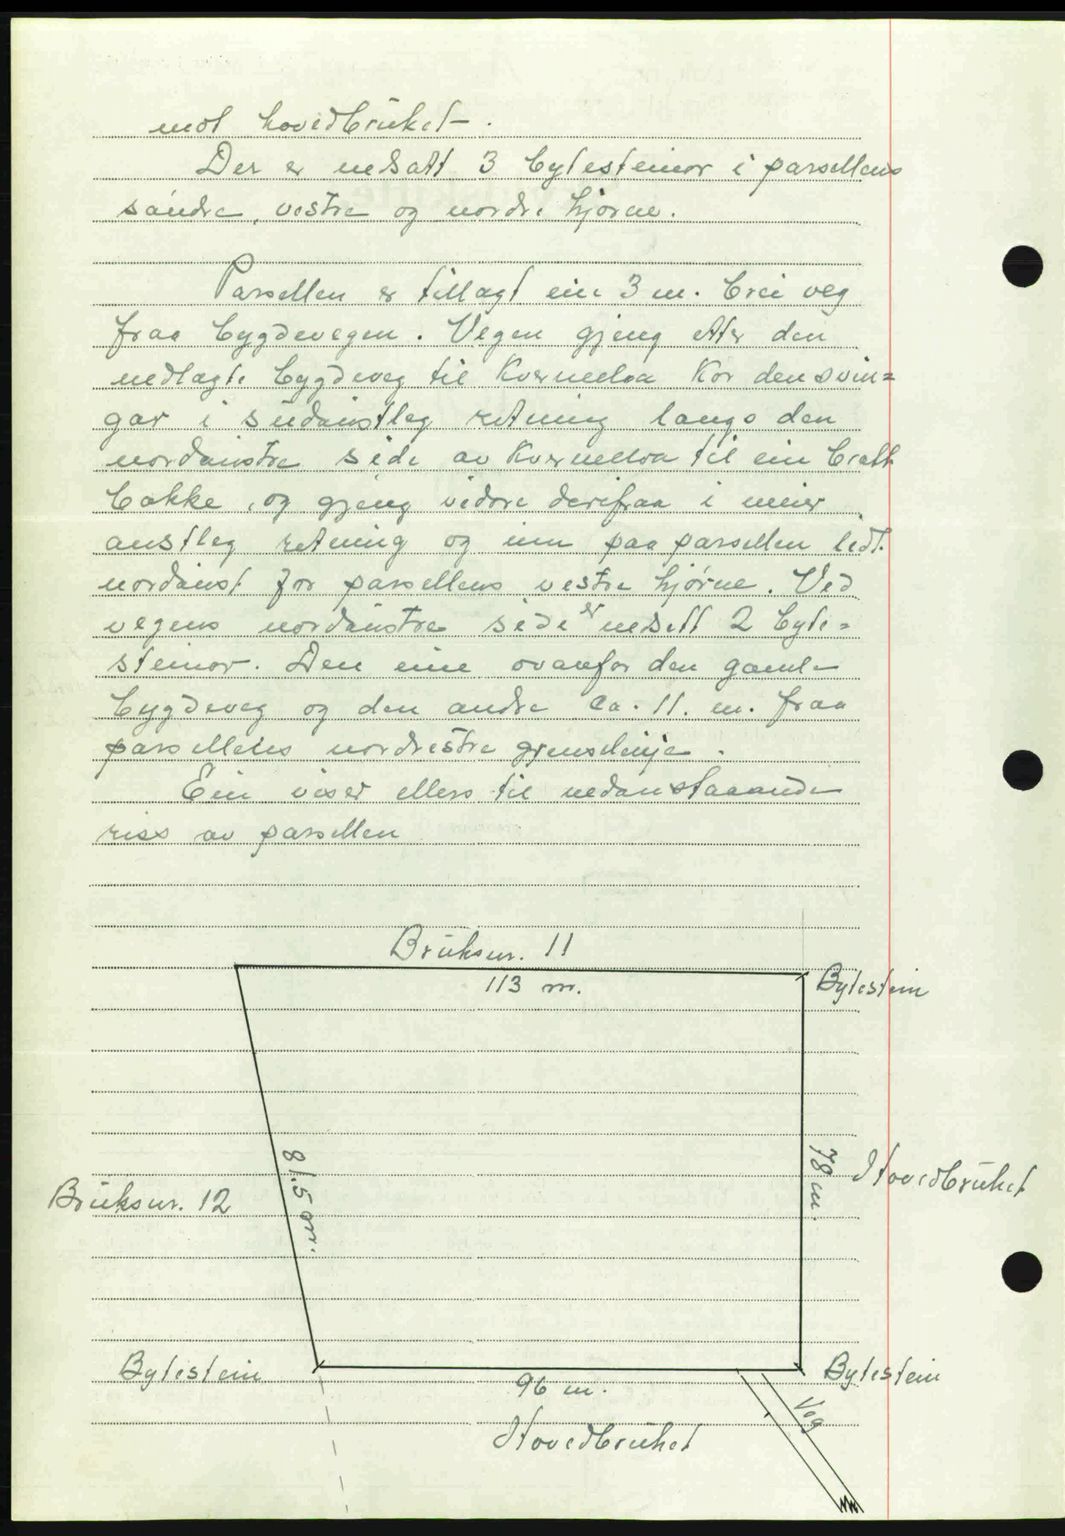 mot hovedbruket.
Der er nedsatt 3 bytesteinor i parsellens
søndre, vestre og nordre hjørne.
Parsellen er tillagt ein 3 m. brei veg
fraa bygdevegen. Vegen gjeng etter den
nedlagte bygdeveg til Kvernelva kor den svin=
gar i südaustleg retning langs den
nordaustre side av Kvernelva til ein bratt
bakke, og gjeng vidare derifraa i meir
austleg retning og inn paa parsellen lidt
nordaust for parsellens vestre hjørne. Ved
vegens nordaustre side er nedsett 2 byte=
steinor. Den eine ovanfor den gamle
bygdeveg og den andre ca. 11. m. fraa
parsellens nordvestre grenselinje.
Ein viser ellers til nedanstaaande
riss av parsellen
Bruksnr. 11
113 m.
Bytestein
81.5 m.
78 m.
Hovedbruket
Bruksnr. 12
Bytestein
96 m.
Bytestein
Veg
Hovedbruket